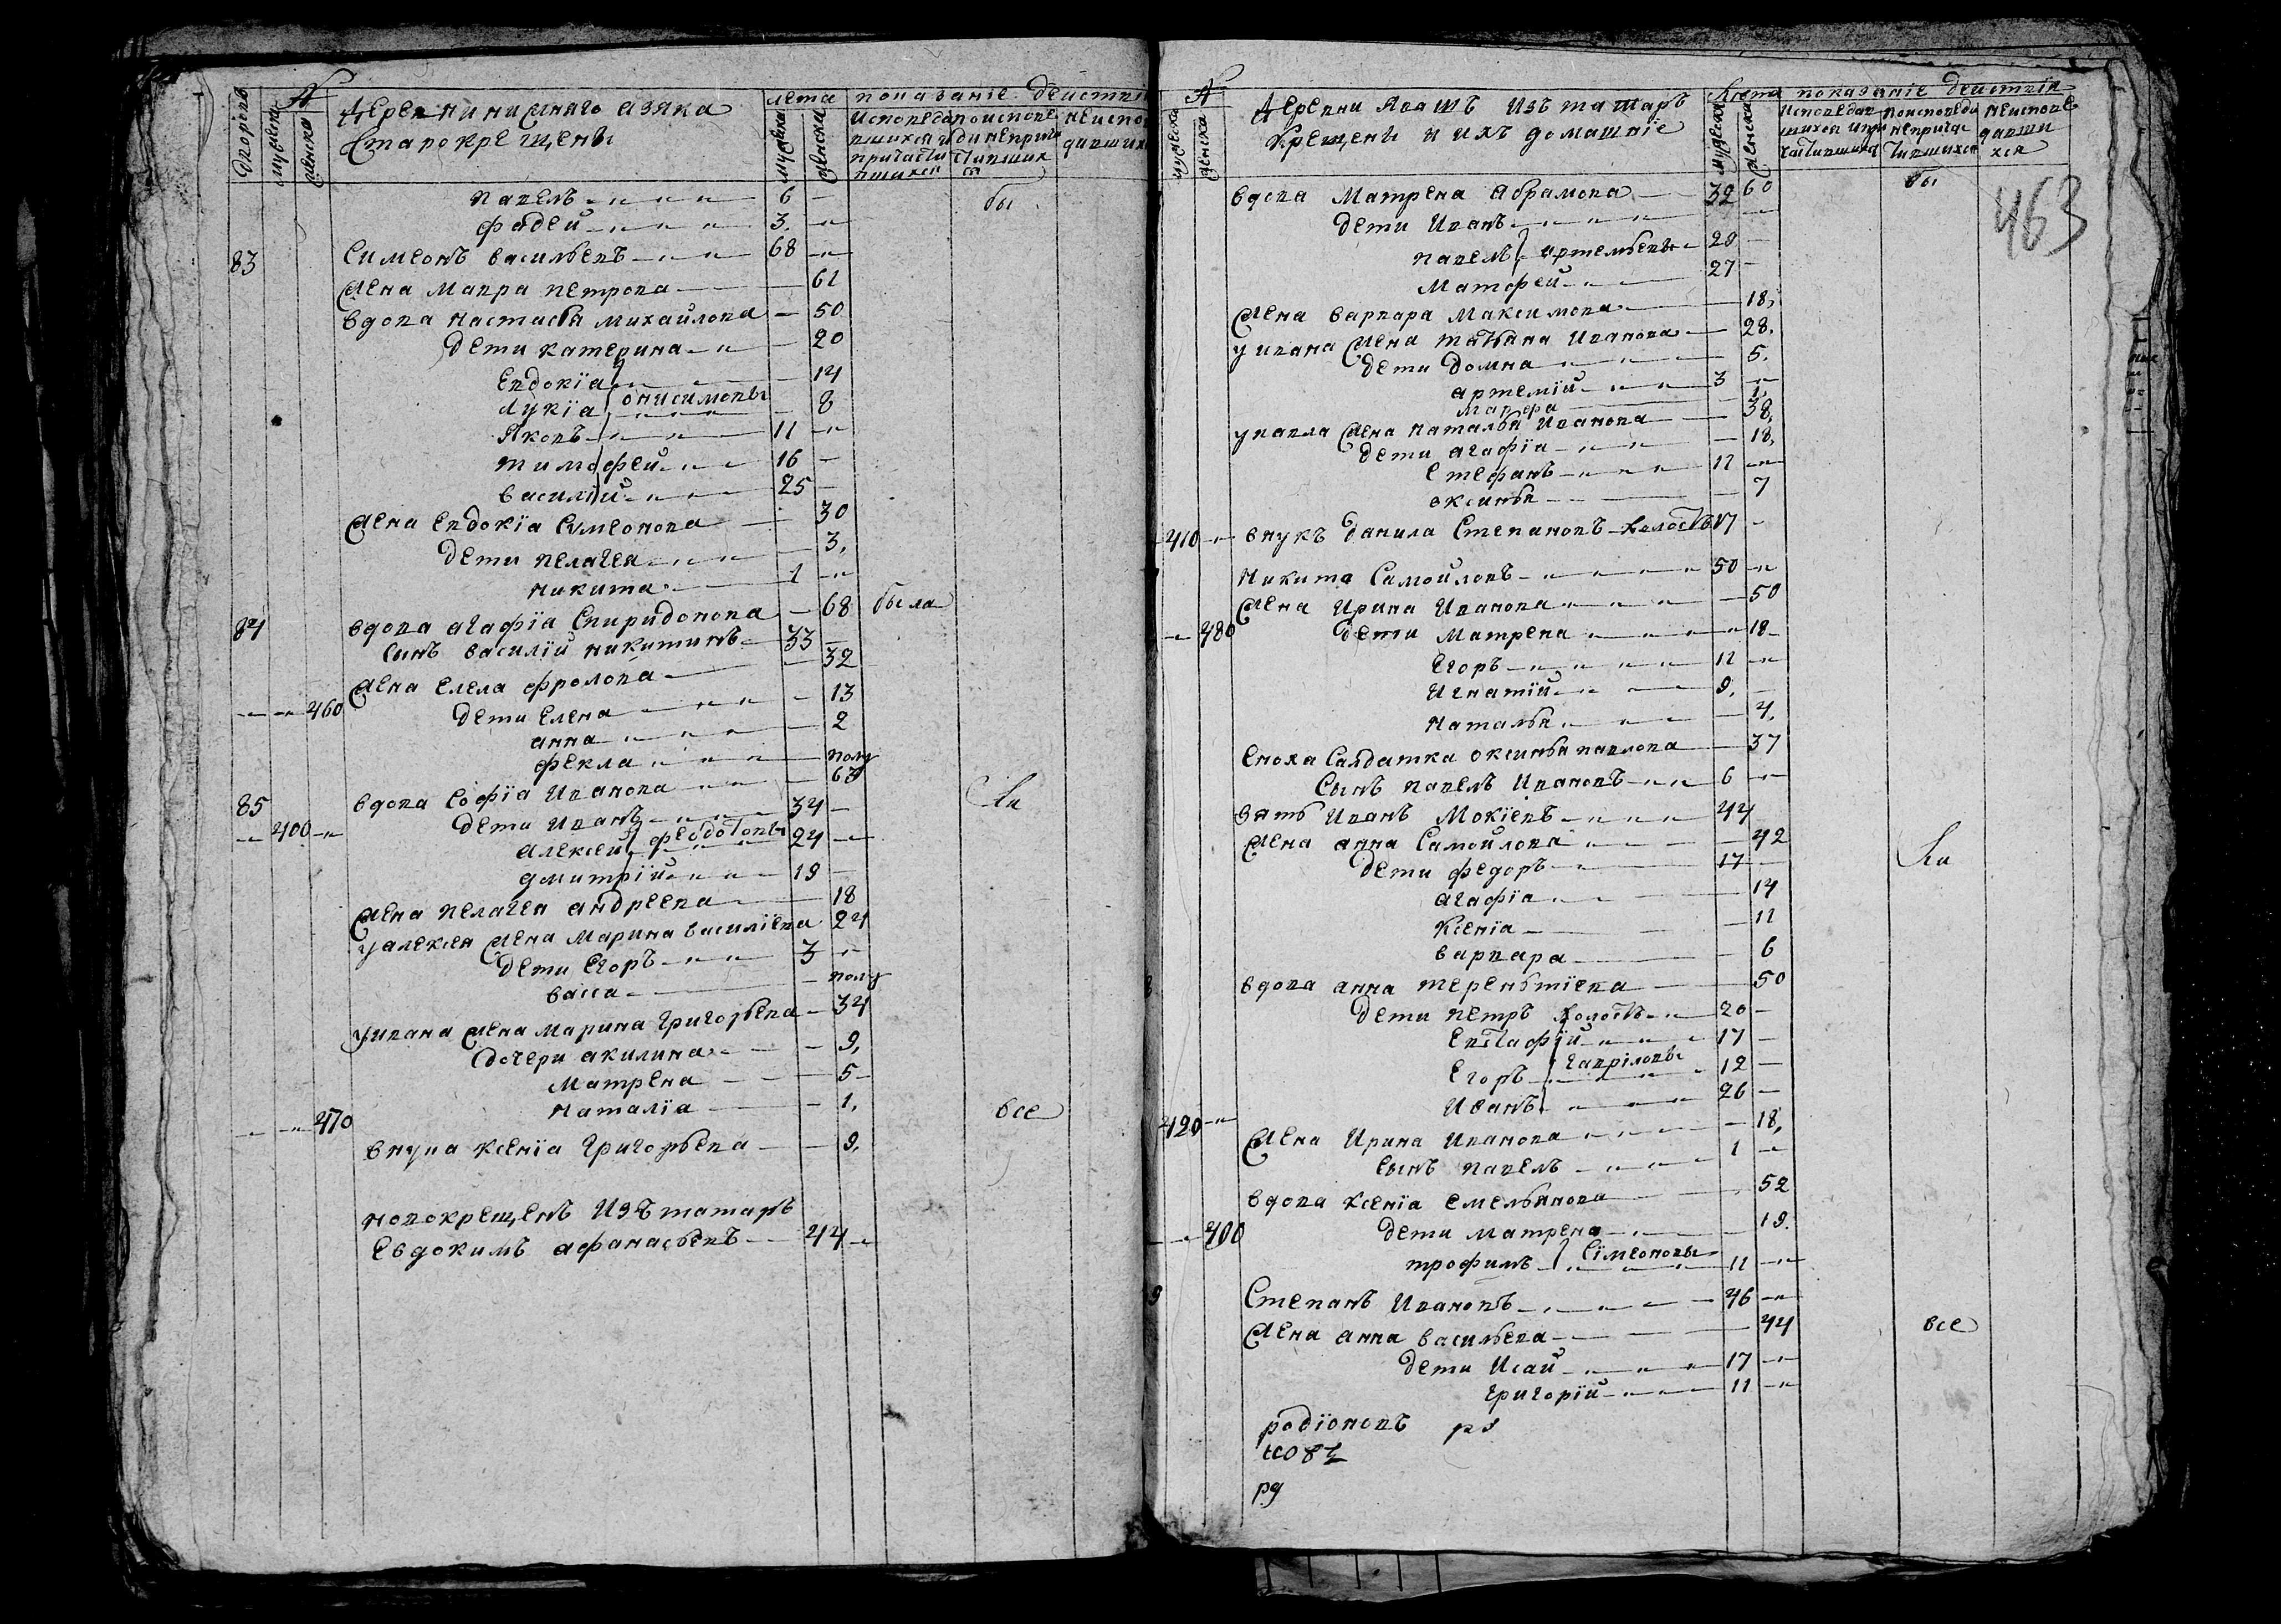 дворовъ
мужеска
женска
№
Деревни нисмняго азяка
Старокрещены
лета
мужеска
женска
показание действия
исповедав шихся и причасти вшихся
по исповеди непричастивших ся
неисповедавших
Павелъ 6 бы
фадей 3
83 Симеонъ васильевъ 68
Жена Мавра петрова 61
вдова настасья михайлова 50
дети катерина 20
Евдокïа 14
Лукïа онисимовы 8
Яковъ 11
тимофей 16
василïй 25
Жена Евдокïа Симеонова 30
дети пелагея 3
никита 1
84 вдова агафïа Спиридонова 68 была
сынъ василïй никитинъ 33
Жена елела фролова 32
460 дети Елена 13
анна 2
фекла полу
85 вдова Софïа Иванова 63 ли
дети Иванъ 34
400 алексей федотовы 24
дмитрïй 19
Жена пелагея андреева 18
у алексея Жена Марина василïева 24
дети Егоръ 3
васса полу
у ивана Жена Марина Григорьева 34
дочери акилина 9
Матрена 5
470 наталïа 1 все
внука ксенïа Григорьева 9
новокрещенъ Изъ татаръ
Евдокимъ афанасьевъ 44
№
мужеска
женска
Деревни Яваш ъ изъ татаръ
Крещены и ихъ домашнïе
лета
мужеска
женска
показанïе действïя
исповедав шихся и при частившихся
по исповеди непричас тившихся
неиспове давши хся
463
вдова Матрена абрамова 60 бы
дети Иванъ 32
павелъ артемьевы 29
Матофей 27
Жена варвара Максимова 18
у ивана Жена татьяна Иванова 28
дети Домна 5
артемïй 3
Марфа 1
у павла Жена наталья Иванова 38
дети агафïа 18
Стефанъ 11
оксинья 7
410 внукъ данила Степановъ холостъ 17
Никита Самойловъ 50
Жена Ирина Иванова 50
480 дети Матрена 18
Егоръ 11
Игнатïй 9
наталья 4
Сноха Салдатка оксинья павлова 37
Сынъ павелъ Ивановъ 6
Зять Иванъ Мокïевъ 44
Жена анна Самойлова 42 ли
дети федоръ 17
агафïа 14
Ксенïа 11
варвара 6
вдова анна терентïева 50
дети петръ холостъ 20
Евстафïй 17
Егоръ гаврïловы 12
Иванъ 26
420
Жена Ирина Иванова 18
сынъ павелъ 1
вдова Ксенïа емельянова 52
490 дети матрена 19
трофимъ Сïмеоновы 11
Степанъ Ивановъ 46
Жена анна васильева 44 все
дети Исай 17
григорïй 11
родïоновъ
рд